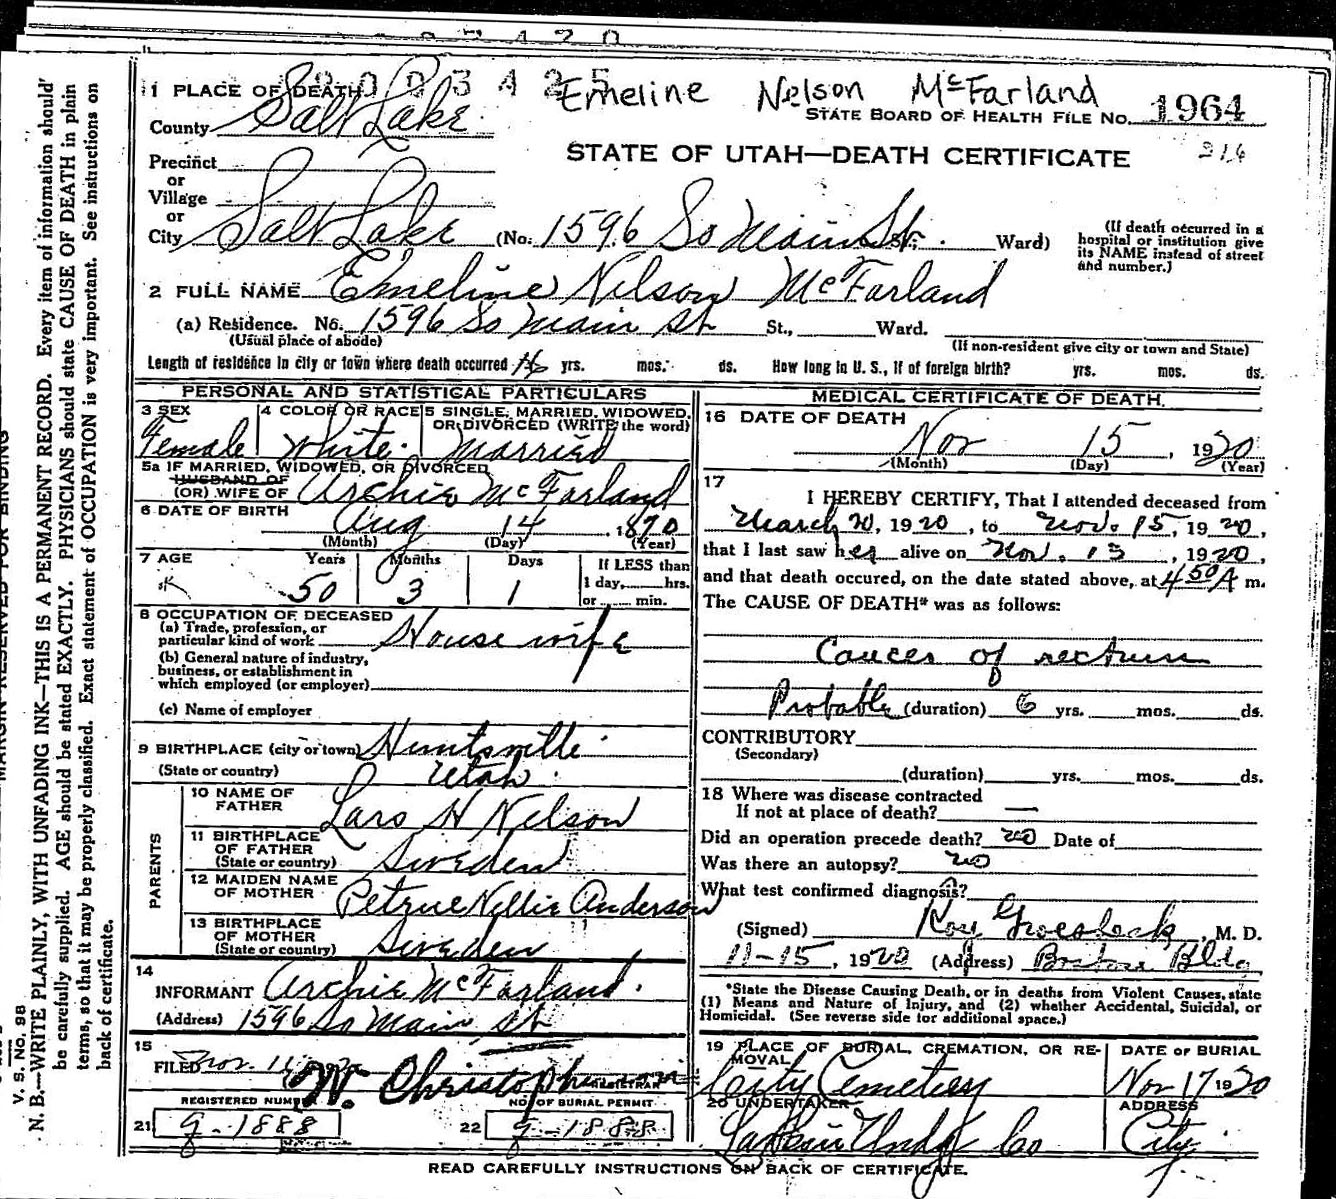 1 PLACE OF DEATH
Emeline Nelson McFarland
County Salt Lake
STATE BOARD OF HEALTH FILE No. 1964
216
STATE OF UTAH—DEATH CERTIFICATE
Precinct
or
Village
or
City Salt Lake (No. 1596 So Main St. Ward)
(If death occurred in a
hospital or institution give
its NAME instead of street
and number.)
2 FULL NAME Emeline Nelson McFarland
(a) Residence. No. 1596 So Main St St., Ward.
(Usual place of abode)
(If non-resident give city or town and State)
Length of residence in city or town where death occurred yrs. mos. ds. How long in U. S., if of foreign birth? yrs. mos. ds.
PERSONAL AND STATISTICAL PARTICULARS
3 SEX
Female
4 COLOR OR RACE
White.
5 SINGLE, MARRIED, WIDOWED,
OR DIVORCED (WRITE the word)
Married
5a IF MARRIED, WIDOWED, OR DIVORCED
HUSBAND OF
(OR) WIFE OF Archie McFarland
6 DATE OF BIRTH
Aug 14, 1870
(Month) (Day) (Year)
7 AGE
Years Months Days
50 3 1
If LESS than
1 day,.....hrs.
or ..... min.
8 OCCUPATION OF DECEASED
(a) Trade, profession, or
particular kind of work Housewife
(b) General nature of industry,
business, or establishment in
which employed (or employer)
(c) Name of employer
9 BIRTHPLACE (city or town) Huntsville
(State or country) Utah.
PARENTS
10 NAME OF
FATHER Lars H Nelson
11 BIRTHPLACE
OF FATHER
(State or country) Sweden
12 MAIDEN NAME
OF MOTHER Petrue Nellie Anderson
13 BIRTHPLACE
OF MOTHER
(State or country) Sweden
14
INFORMANT Archie McFarland.
(Address) 1596 So Main St
15
FILED Nov. W. Christopherson
REGISTRAR
REGISTERED NUMBER
21 g-1888
NO. OF BURIAL PERMIT
22 g-1888
MEDICAL CERTIFICATE OF DEATH
16 DATE OF DEATH
Nov 15, 1920
(Month) (Day) (Year)
17
I HEREBY CERTIFY, That I attended deceased from
March 20, 1920, to Nov. 15, 1920,
that I last saw her alive on Nov. 13, 1920,
and that death occured, on the date stated above, at 4 50 A m.
The CAUSE OF DEATH* was as follows:
Cancer of rectum
Probable (duration) 6 yrs. mos. ds.
CONTRIBUTORY
(Secondary)
(duration) yrs. mos. ds.
18 Where was disease contracted
If not at place of death? —
Did an operation precede death? no Date of
Was there an autopsy? no
What test confirmed diagnosis?
(Signed) Roy Groesbeck, M. D.
11-15, 1920 (Address) Boston Bldg
*State the Disease Causing Death, or in deaths from Violent Causes, state
(1) Means and Nature of Injury, and (2) whether Accidental, Suicidal, or
Homicidal. (See reverse side for additional space.)
19 PLACE OF BURIAL, CREMATION, OR RE-
MOVAL
City Cemetery
DATE OF BURIAL
Nov 17 1920
20 UNDERTAKER
Larkin Undg Co
ADDRESS
City
READ CAREFULLY INSTRUCTIONS ON BACK OF CERTIFICATE.
MARGIN RESERVED FOR BINDING
V. S. No. 98
N. B.—WRITE PLAINLY, WITH UNFADING INK—THIS IS A PERMANENT RECORD. Every item of information should
be carefully supplied. AGE should be stated EXACTLY. PHYSICIANS should state CAUSE OF DEATH in plain
terms, so that it may be properly classified. Exact statement of OCCUPATION is very important. See instructions on
back of certificate.